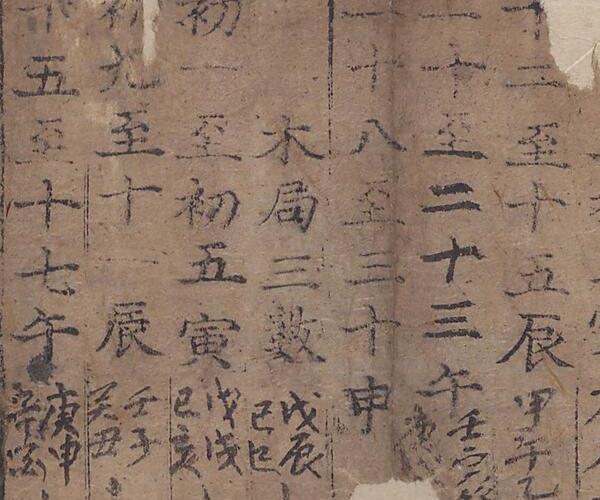 十二至十五辰甲午
二十至二十三午壬
二十八至三十申
木局三數戊辰己巳
初一至初五寅戊戌己亥
初九至十一辰壬子癸丑
十五至十七午庚申